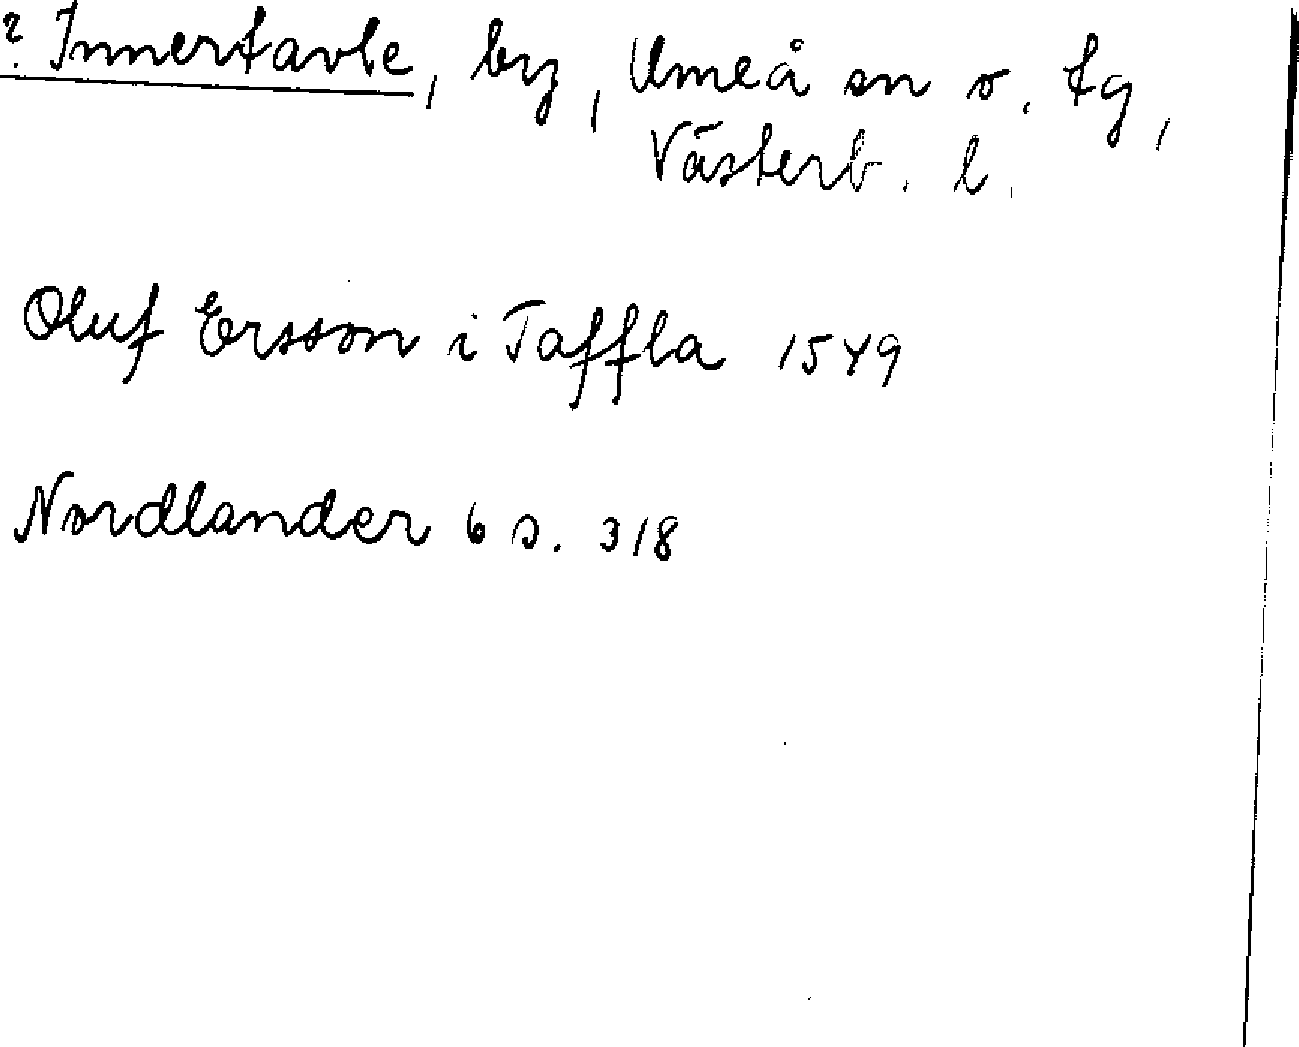 ? Innertavle, by, Umeå sn o. tg,
Västerb. l.
Oluf Ersson i Taffla 1549
Nordlander 6 s. 318